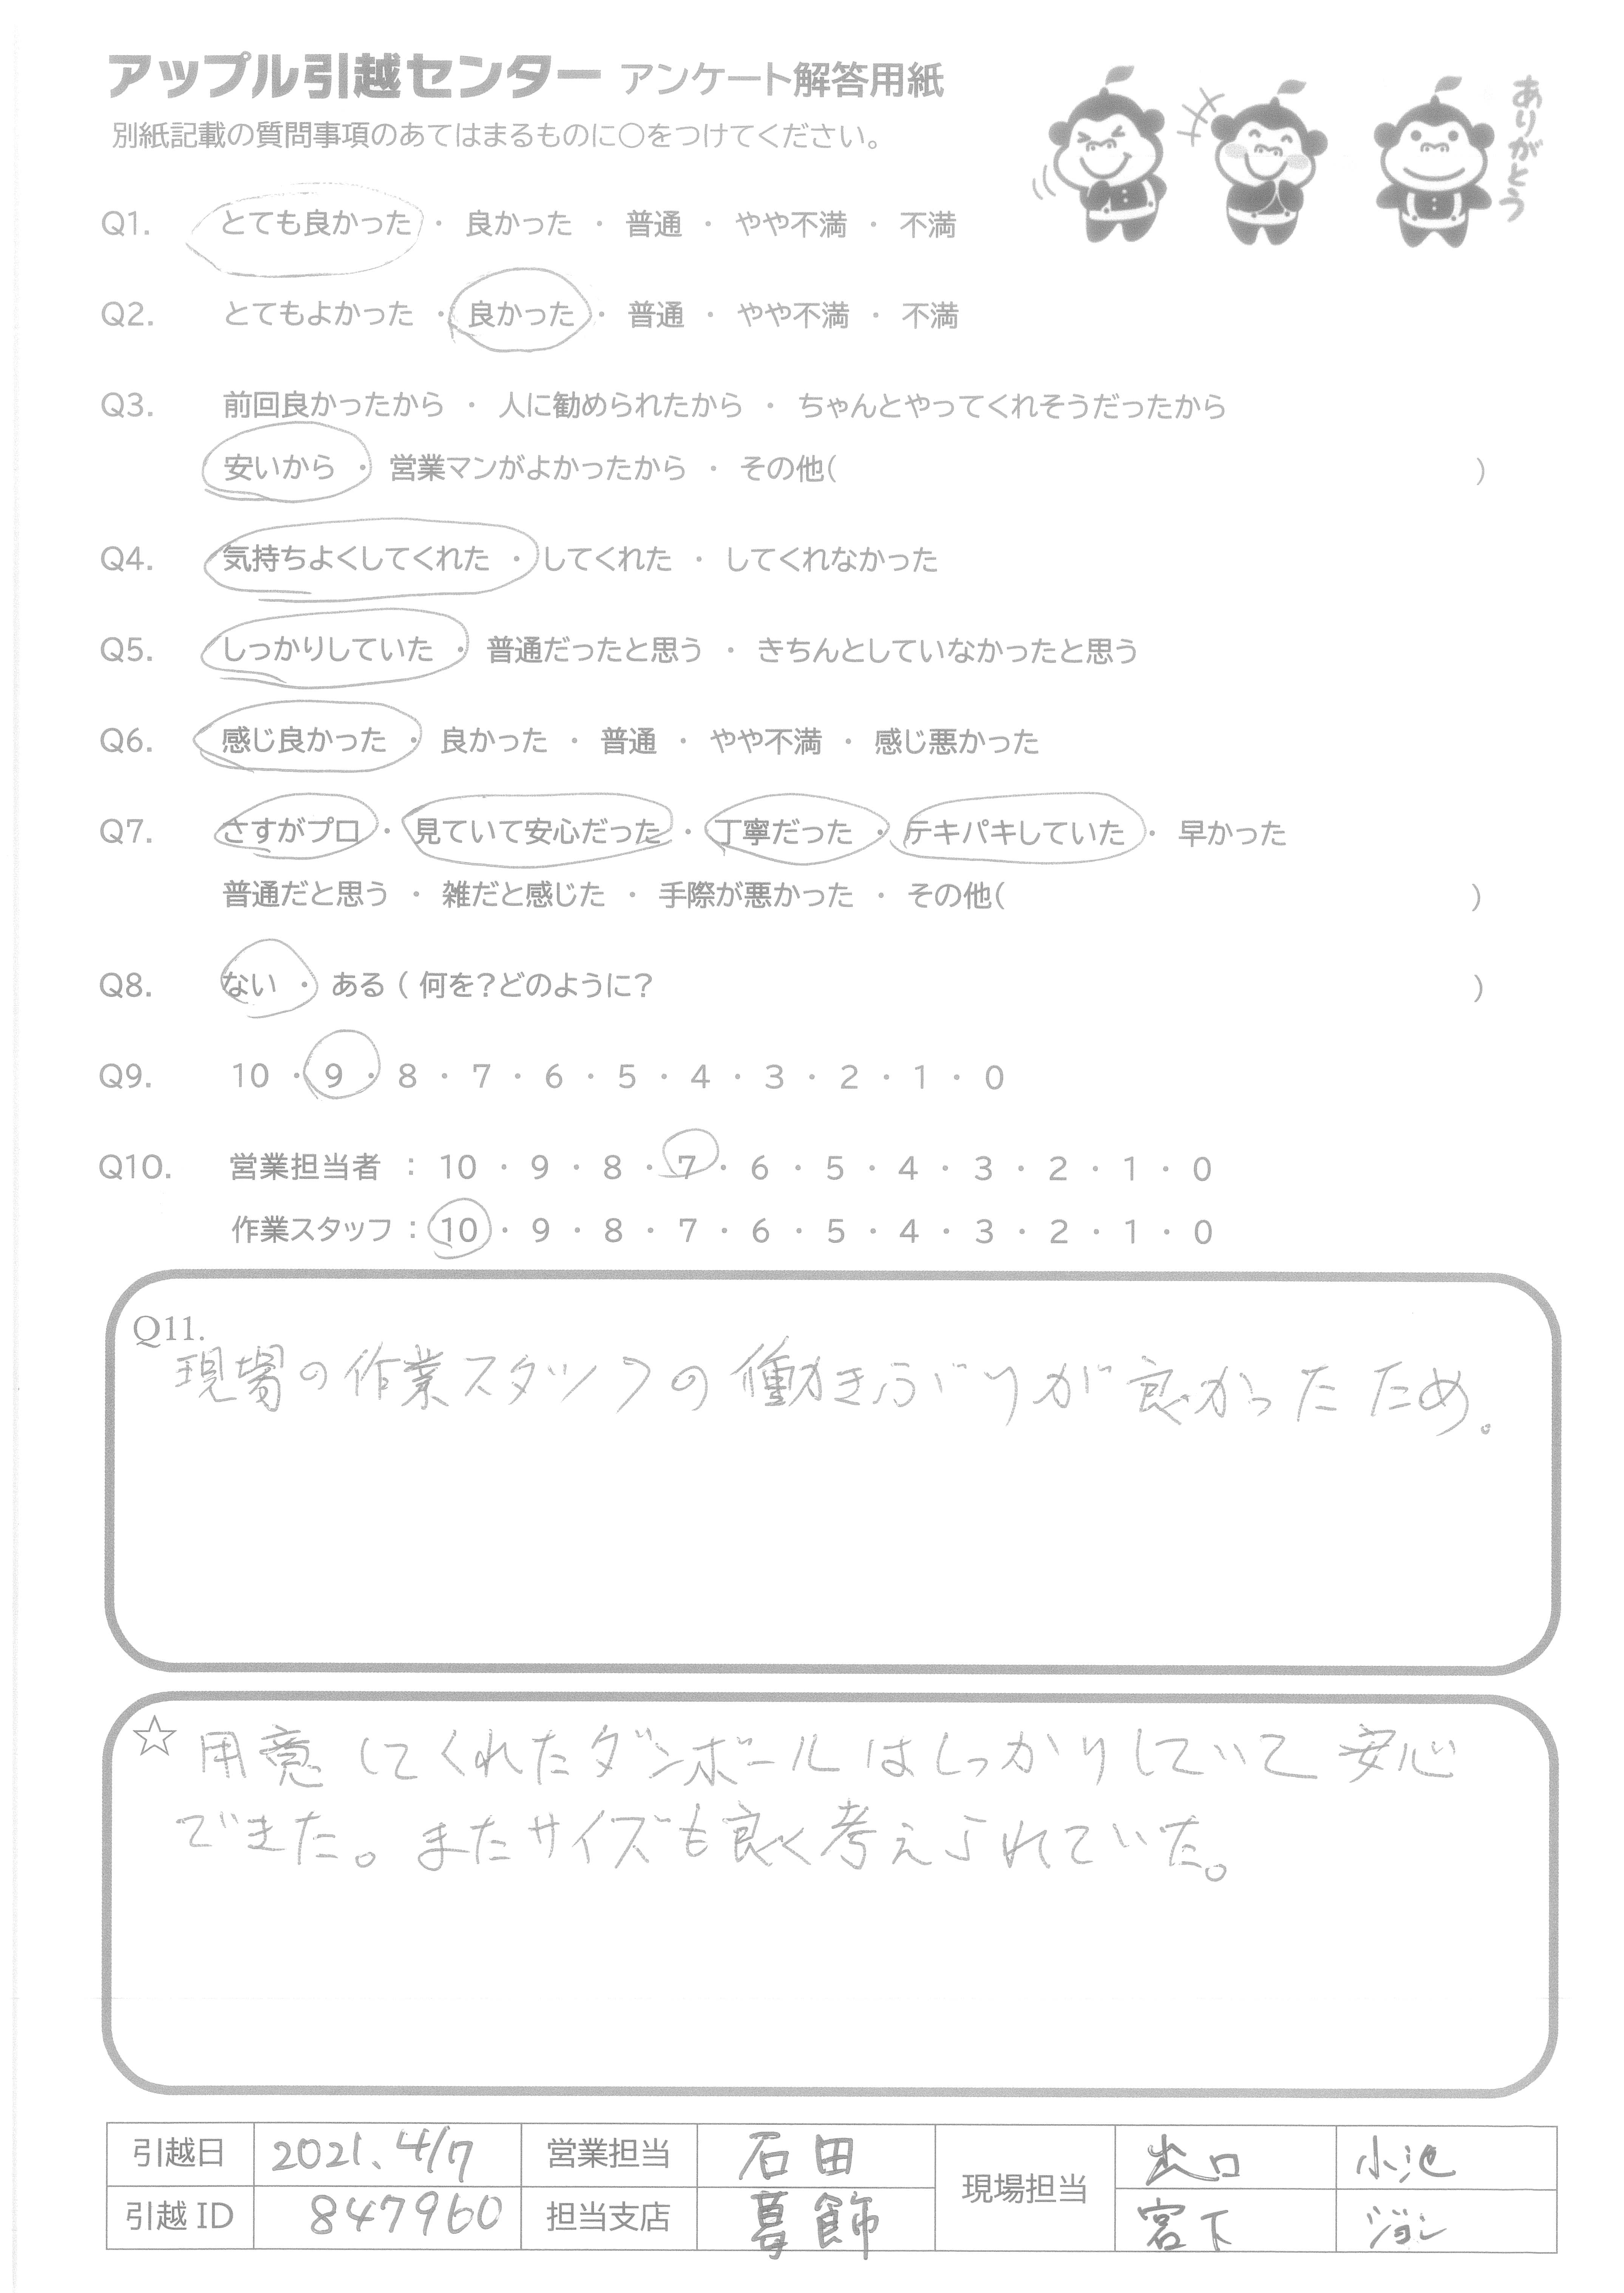 アップル引越センター アンケート解答用紙
ありがとう
別紙記載の質問事項のあてはまるものに○をつけてください。
Q1. とても良かった ・ 良かった ・ 普通 ・ やや不満 ・ 不満
Q2. とてもよかった ・ 良かった ・ 普通 ・ やや不満 ・ 不満
Q3. 前回良かったから ・ 人に勧められたから ・ ちゃんとやってくれそうだったから
安いから ・ 営業マンがよかったから ・ その他( )
Q4. 気持ちよくしてくれた ・ してくれた ・ してくれなかった
Q5. しっかりしていた ・ 普通だったと思う ・ きちんとしていなかったと思う
Q6. 感じ良かった ・ 良かった ・ 普通 ・ やや不満 ・ 感じ悪かった
Q7. さすがプロ ・ 見ていて安心だった ・ 丁寧だった ・ テキパキしていた ・ 早かった
普通だと思う ・ 雑だと感じた ・ 手際が悪かった ・ その他( )
Q8. ない ・ ある ( 何を？どのように？ )
Q9. 10 ・ 9 ・ 8 ・ 7 ・ 6 ・ 5 ・ 4 ・ 3 ・ 2 ・ 1 ・ 0
Q10. 営業担当者 : 10 ・ 9 ・ 8 ・ 7 ・ 6 ・ 5 ・ 4 ・ 3 ・ 2 ・ 1 ・ 0
作業スタッフ : 10 ・ 9 ・ 8 ・ 7 ・ 6 ・ 5 ・ 4 ・ 3 ・ 2 ・ 1 ・ 0
Q11.
現場の作業スタッフの働きぶりが良かったため。
☆ 用意してくれたダンボールはしっかりしていて安心
できた。またサイズも良く考えられていた。
引越日 2021、4/7 営業担当 石田 現場担当 出口 小池
引越ID 847960 担当支店 葛飾 宮下 ジョン